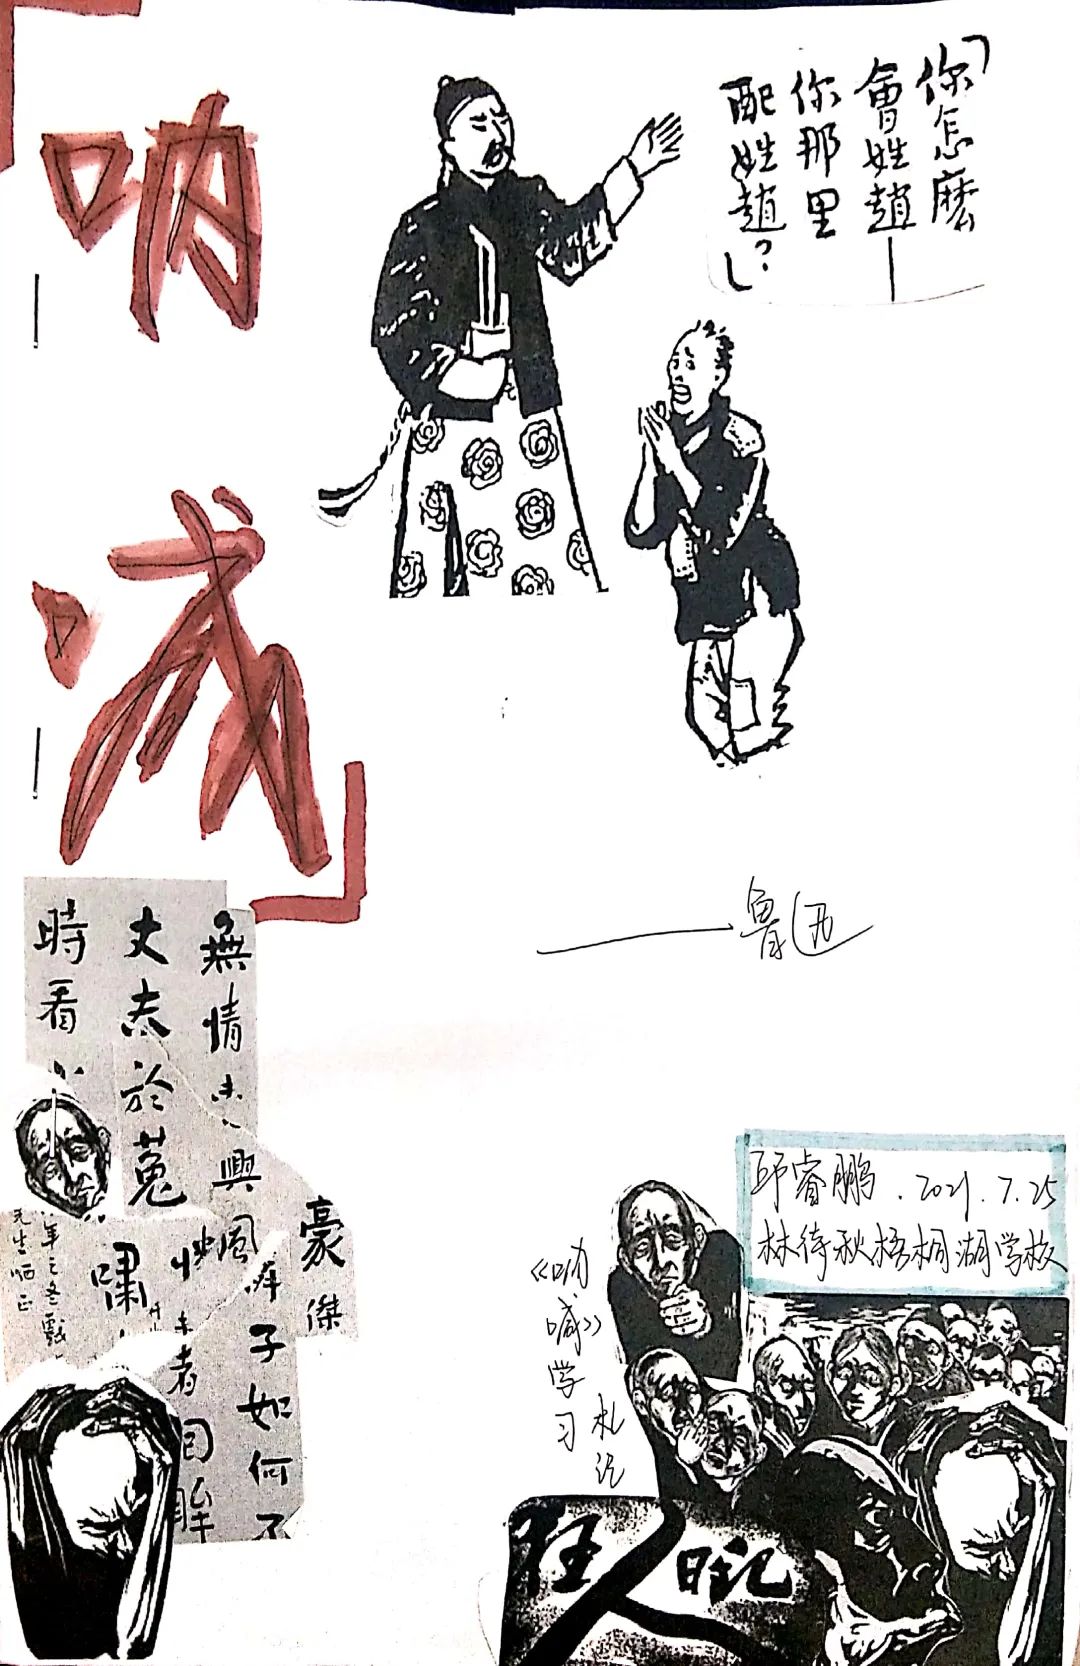 「呐
喊」
「你怎麽
會姓趙—
你那里
配姓趙?」
——鲁迅
無情未
興風
豪傑
子如何不
丈夫
於菟
嘯
者
回眸
時看小
年之冬戲
先生哂正
邱睿鹏.2021.7.25
林待秋梧桐湖学校
《呐
喊》学习
札记
狂人日記